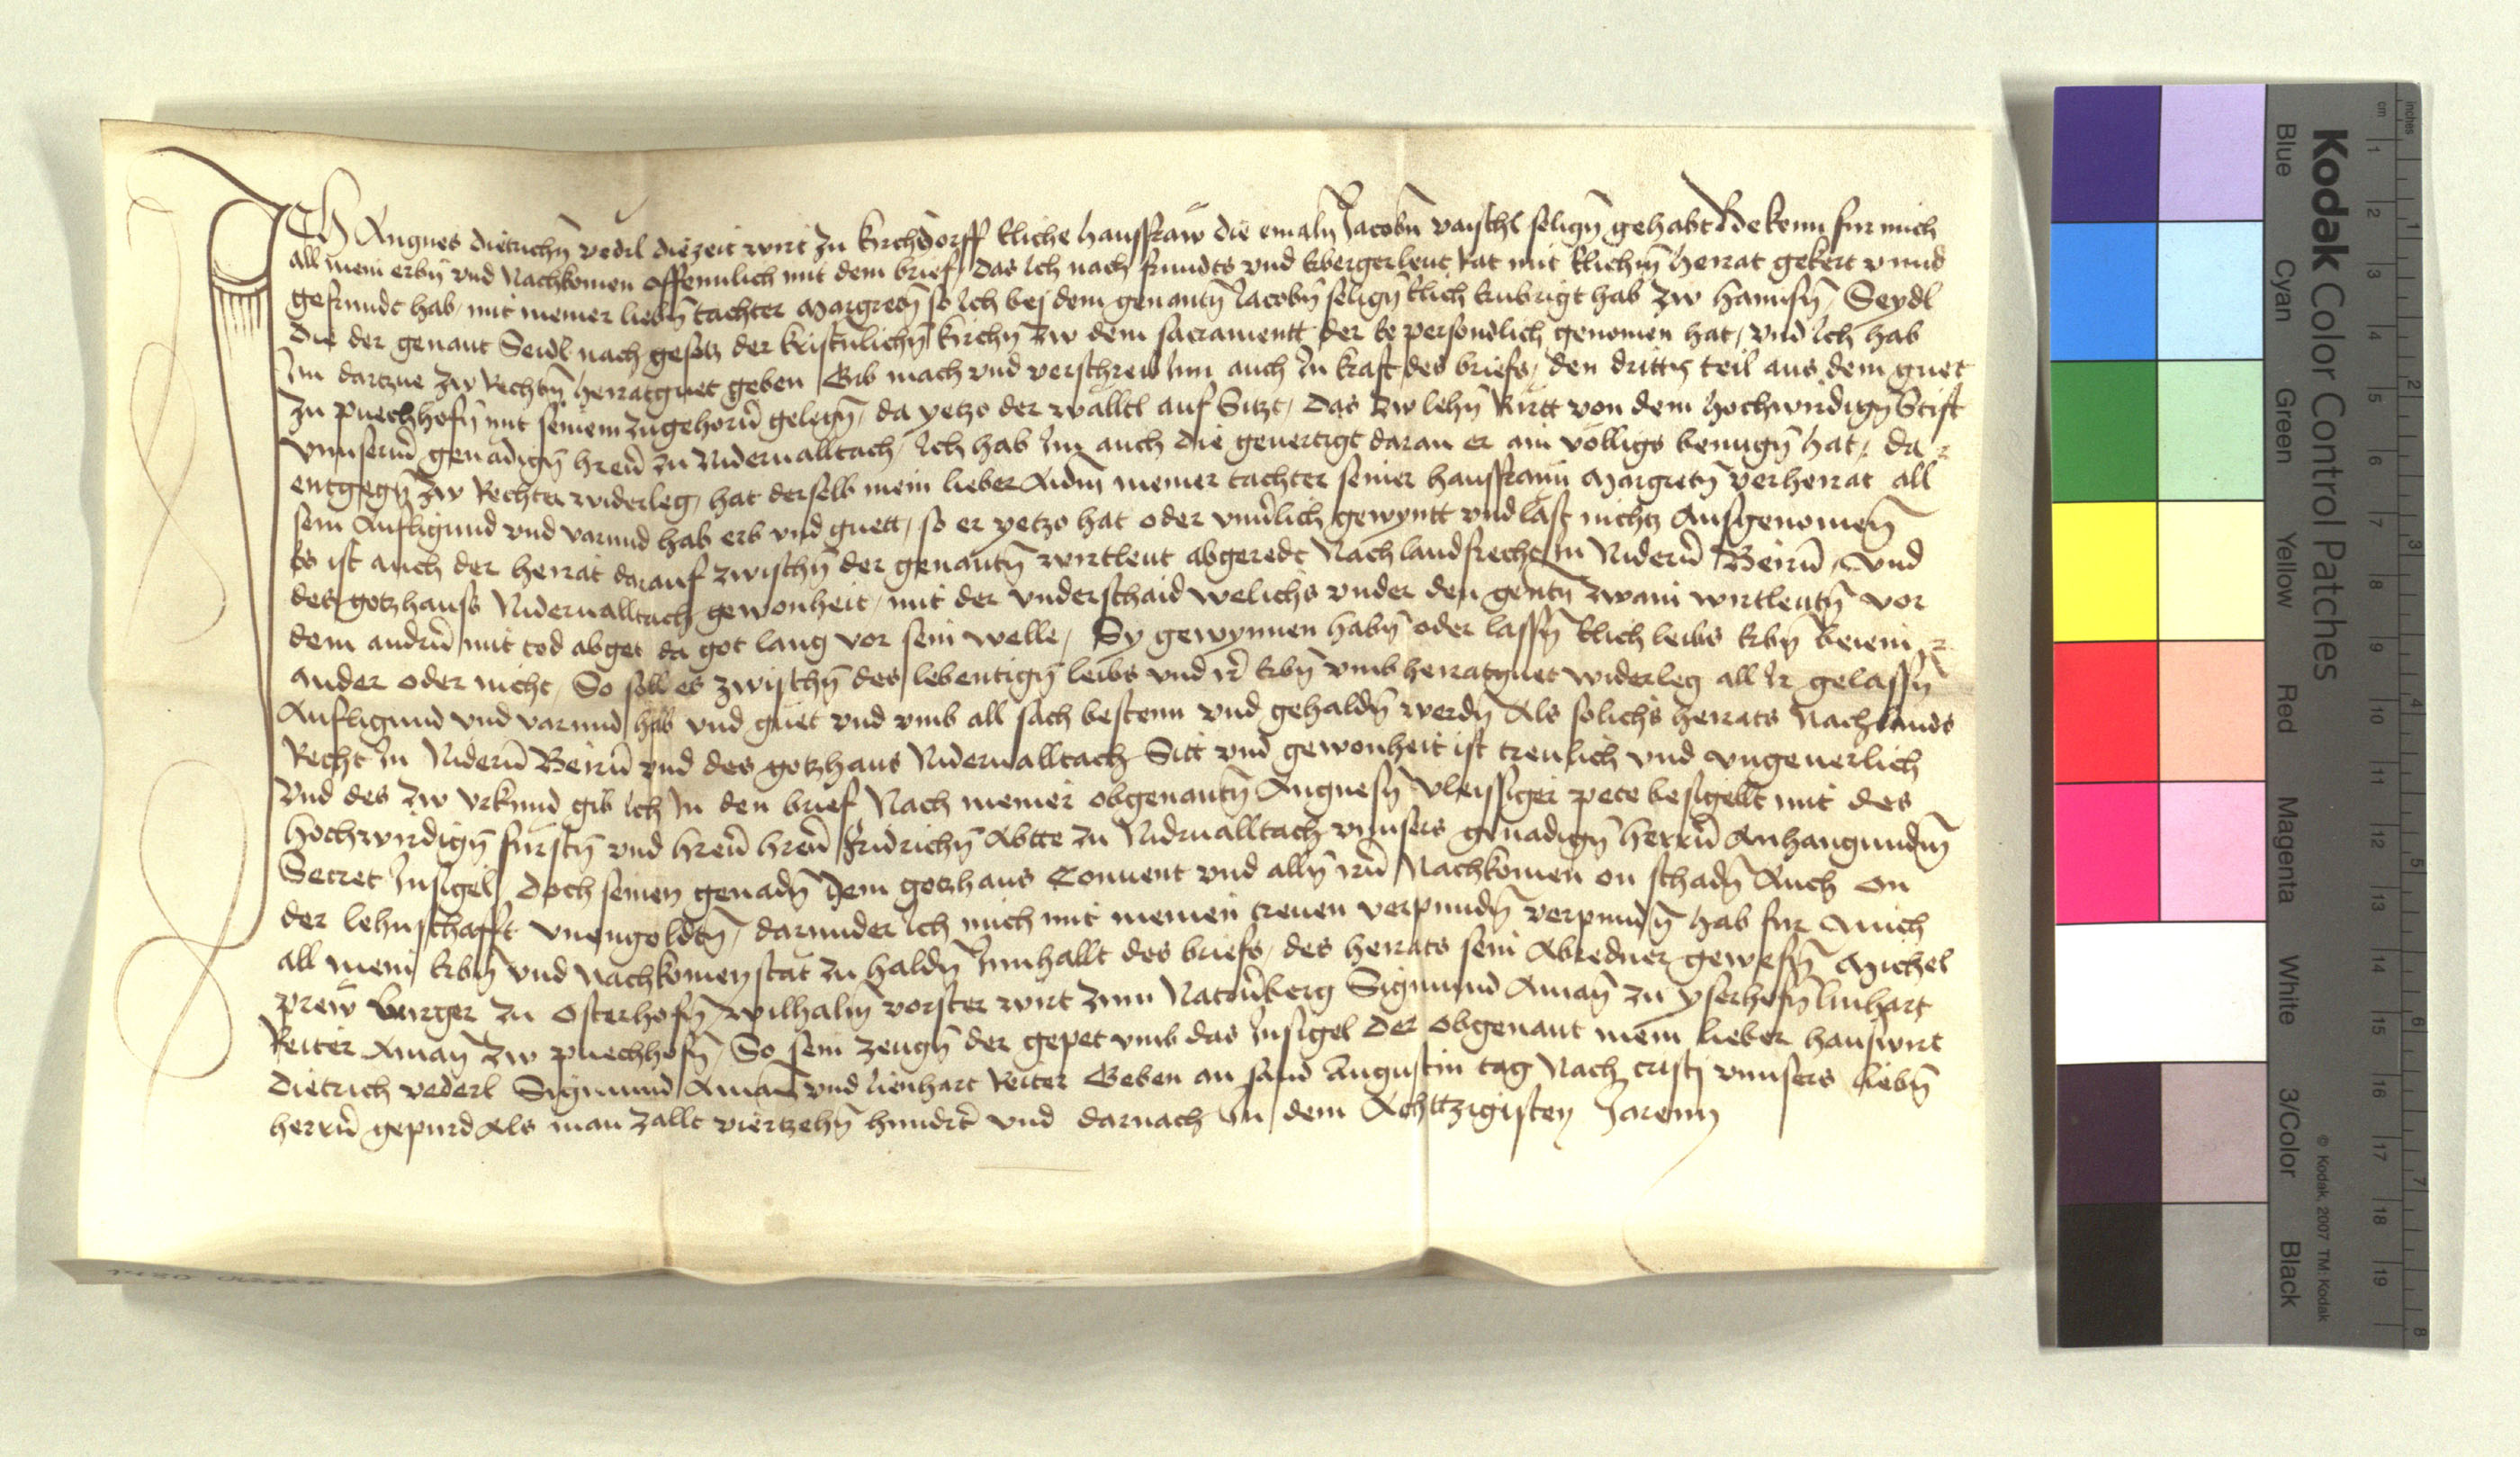 Ich Angnes dietrichn vedrl diezeit wirt zu kirchdorff eliche hausfraw die emaln Jacobn vaischl seligen gehabt Bekenn fur mich
all mein erbn vnd Nachkomen offennlich mit dem brief, das ich nach frundts vnd erbergerleut Rat mit elichm heirat gekert vnnd
gefrundt hab, mit meiner liebn tachter Margretn so ich bej dem genantn Jacobn seligen elich hab zw hannsn, Seydl
Die der genant Seidl nach gesetz der kristnlichn kirchn zw dem sacramentt der Ee personlich genomen hat, vnd ich hab
Im dartzue zw Rechtn heiratguet geben Gib mach vnd verschreib Im auch in kraft des briefs, den dritt teil aus dem guet
zu puechhofn mit seinem zugehorn gelegn, da yetzo der wälltl auf Sitzt, das zw lehn Rürtt von dem hochwirdign Stift
vnnserm genadign hern zu Nidernalltach, Ich hab Im auch die geuertigt daran er ain völligs benugn hat, da
entgegn zw Rechter widerleg, hat derselb mein lieber Aidm meiner tachter seiner hausfraun Margretn verheirat all
sein Aufligund vnd varnnd hab erb vnd guett, so er yetzo hat oder gewyntt vnd last nichtz Ausgenomen
Es ist auch der heirat darauf zwischn der genantn wirtleut abgeredt Nach landsrecht In Nidern Beirn, Vnd
des gotzhauss Nidernalltach gewonheit, mit der vnderschaid welichs vnder den gentn zwain wirtleutn vor
dem andrn mit tod abget da got lang vor sein welle, Sy gewynnen habn oder lassn elich leibs Erbn beiein
ander oder nicht, So soll es zwischn des lebentign leibs vnd ir Erbn vmb heiratguet widerleg all Ir gelassn
Aufligund vnd varnnd hab vnd guet vnd vmb all sach besteen vnd gehaldn werdn Als solichs heirats Nach lands
Recht In Nidern Beirn vnd des gotzhaus Nidernalltach Sitt vnd gewonheit ist treulich vnd vngeuerlich
Vnd des zw vrkund gib ich In den brief Nach meiner obgenantn Angnesn vleissiger pete besigellt mit des
hochwirdign furstn vnd hern hern Fridrichn Abtte zu Nidrnalltach vnnsers genadign herrn Anhangundm
Secret Insigel, doch seinen genadn dem gotzhaus Conuent vnd alln irn Nachkomen on schadn Auch on
der lehnschafft vnengoldtn, darunder ich mich mit meinen treuen verpundn hab fur Mich
all mein Erbn vnd Nachkomen stat zu haldn Innhallt des briefs, des heirats sein Abredner gewesn Michel
prew burger zu Osterhofn, wilhalm vorster wirt zum Naternberg Sigmund Aman zu yserhofn linhart
Reiter Aman zw puechhofn, So sein zeugn der gepet vmb das Insigel der obgenant mein lieber hauswirt
dietrich vederl Sigmund Aman vnd lienhart Reiter Geben an sand Augustin tag Nach cristj vnnsers liebn
herrn gepurd Als man zallt viertzehn hundrt vnd darnach In dem Achttzigisten Jarenn
Kodak Color Control Patches
Blue Cyan Green Yellow Red Magenta White 3/Color Black
© Kodak, 2007 TM: Kodak
inches 1 2 3 4 5 6 7 8
cm 1 2 3 4 5 6 7 8 9 10 11 12 13 14 15 16 17 18 19